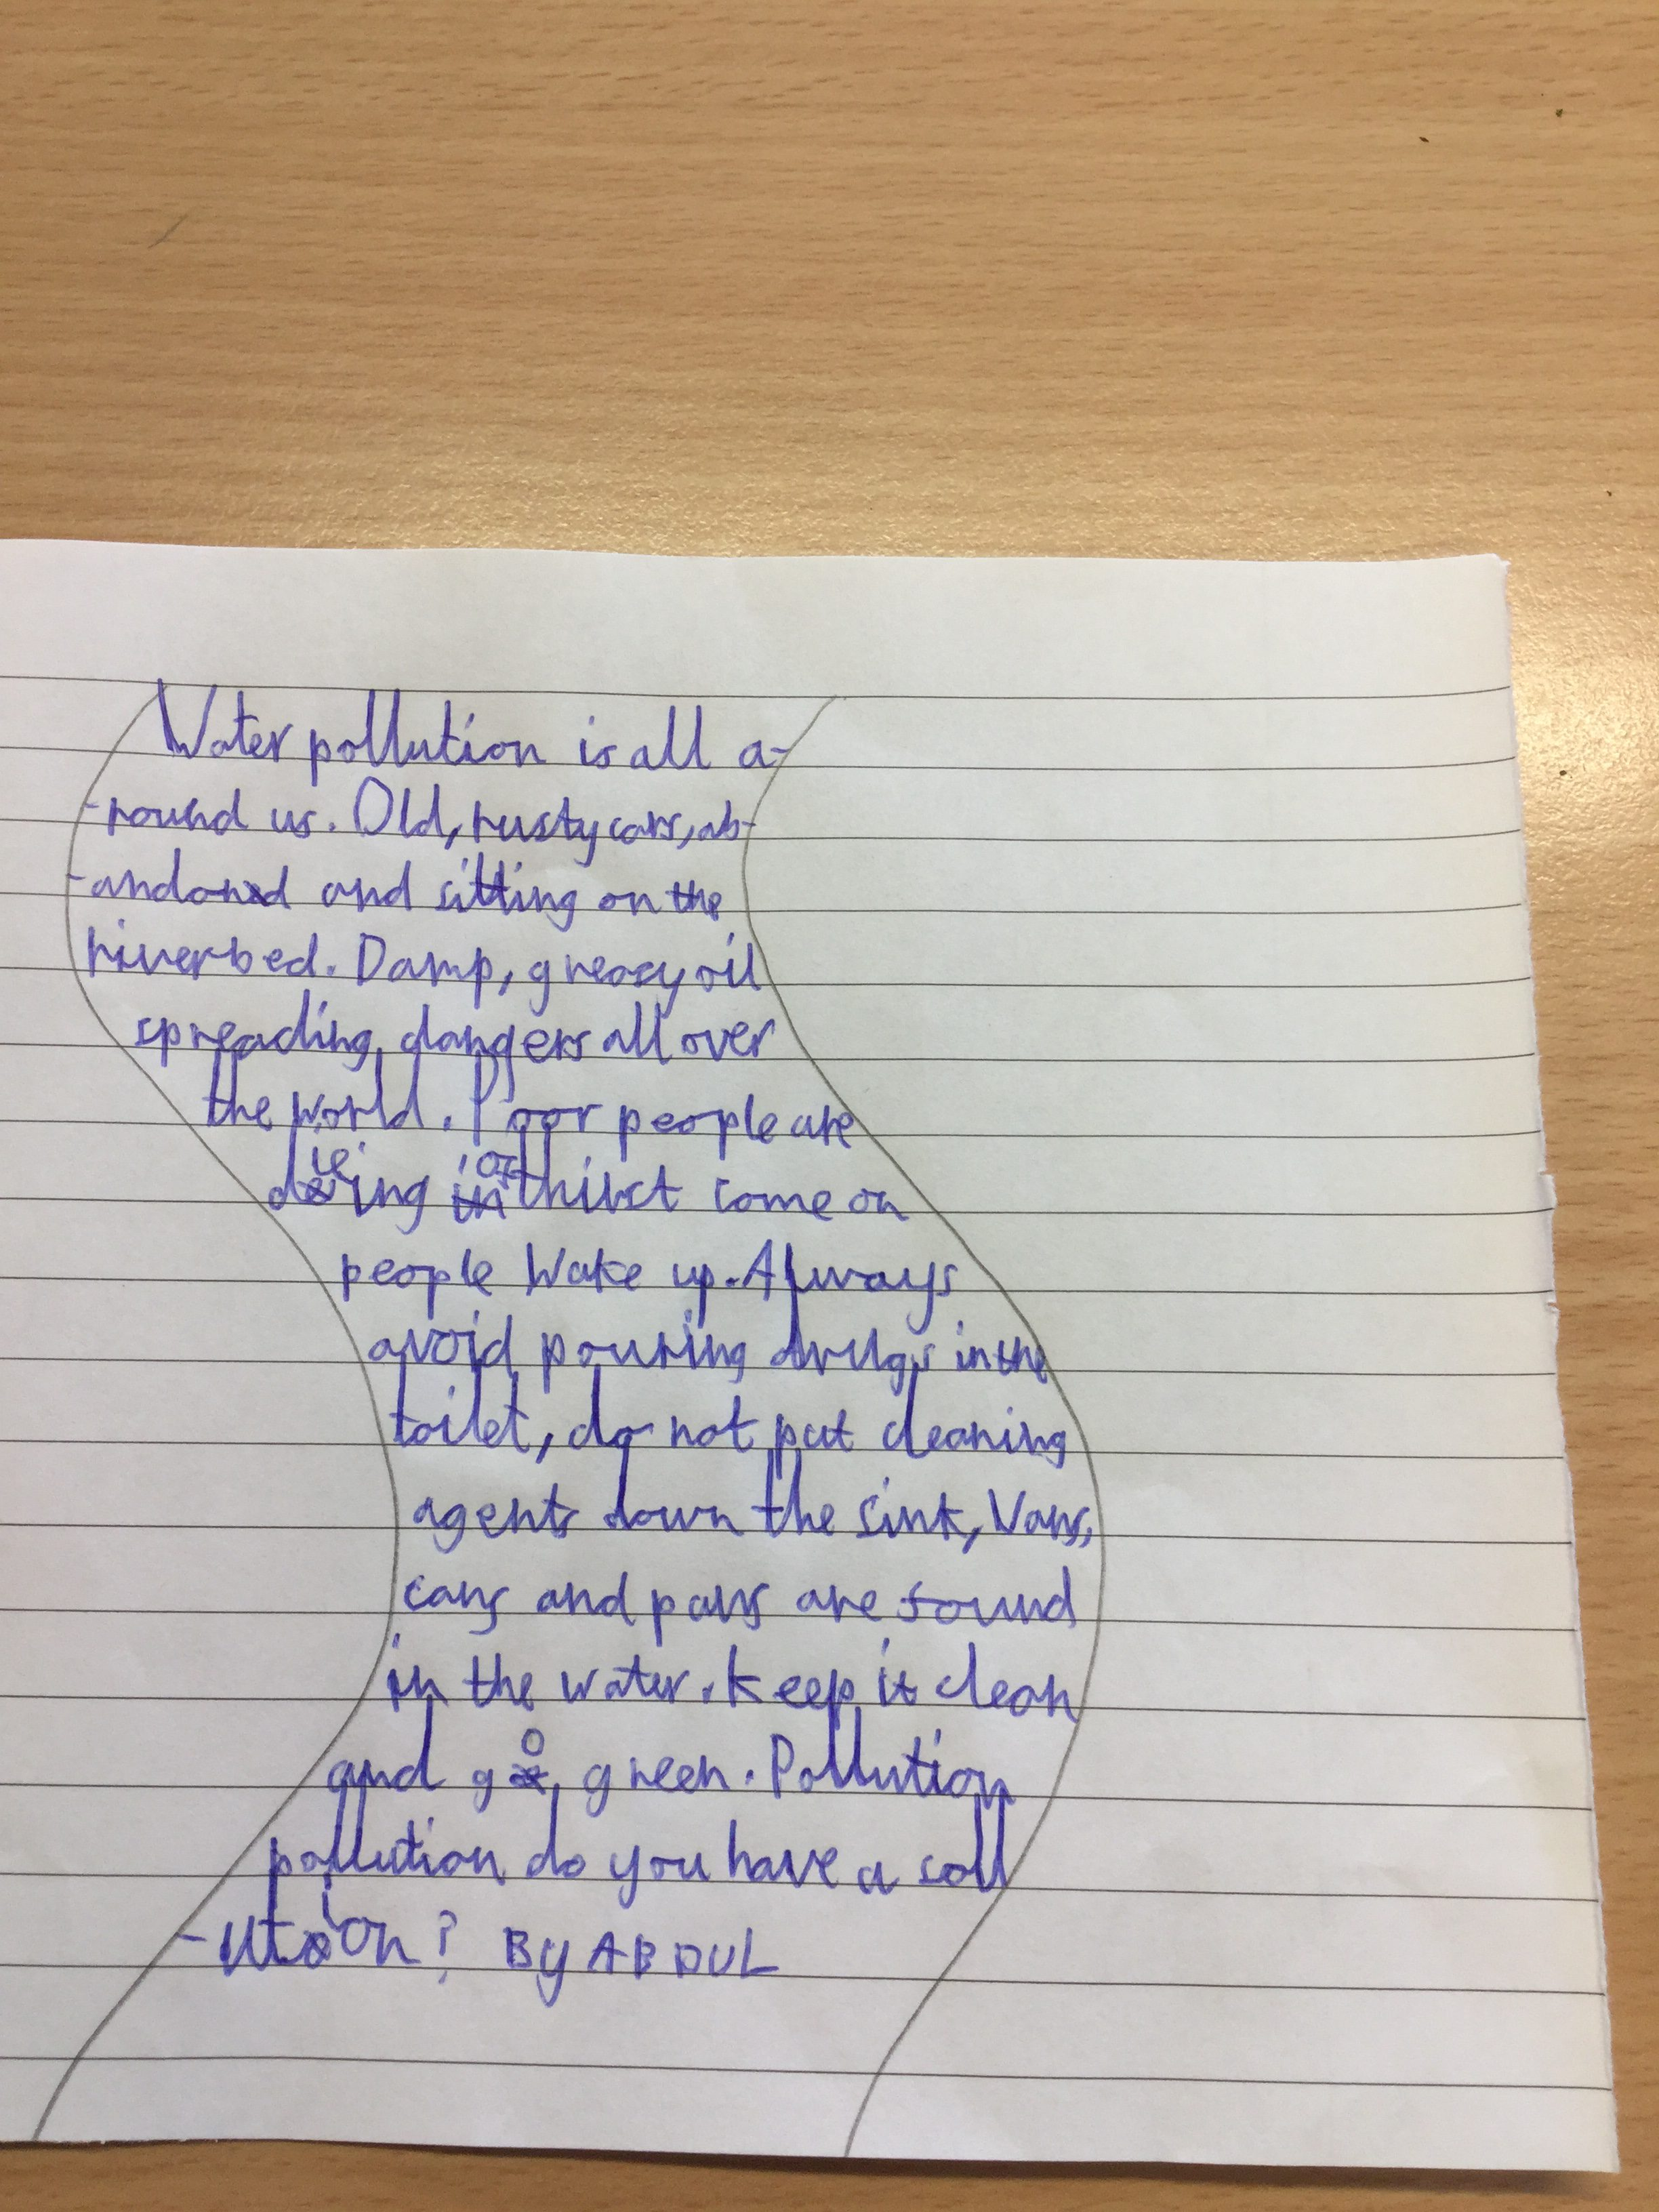 Water pollution is all a-
-round us. Old, rusty cars, ab-
-andoned and sitting on the
riverbed. Damp, greasy oil
spreading dangers all over
the world. Poor people are
dieing of thirst come on
people Wake up. Always
avoid pouring drugs in the
toilet, do not put cleaning
agents down the sink, Vans,
cans and pans are found
in the water. Keep it clean
and go green. Pollution
pollution do you have a soll
-ution? By ABDUL